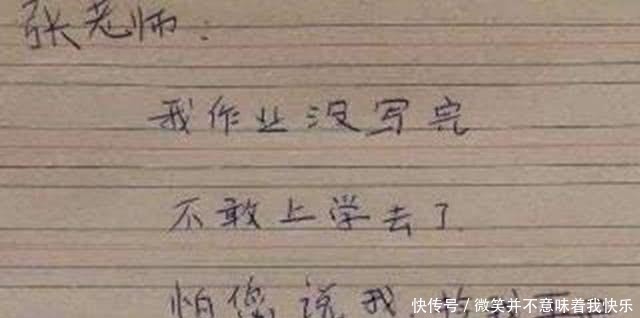 张老师:
我作业没写完
不敢上学去了
怕您说我
快传号/微笑并不意味着我快乐